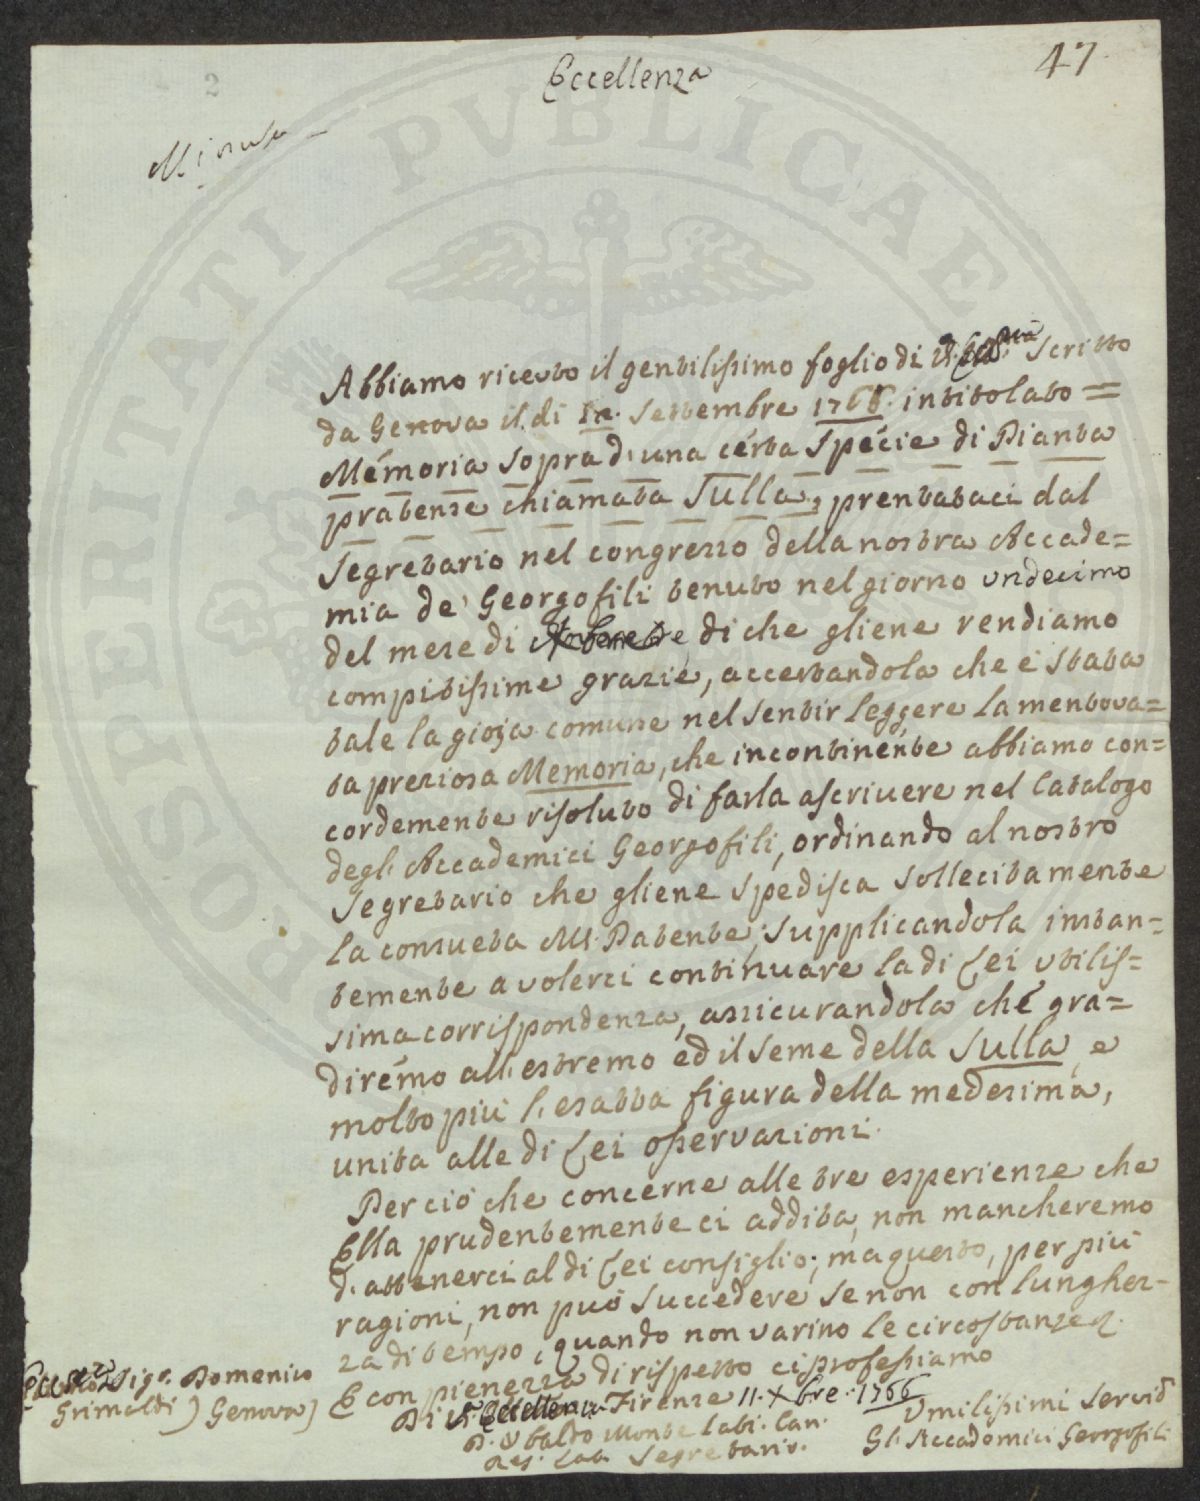 47
Eccellenza
Minuta
Abbiamo ricevuto il gentilissimo foglio di V. Ecc.za scritto
da Genova il dì In. Settembre 1766. intitolato =
Memoria sopra d'una certa Specie di Pianta
pratense chiamata Sulla, prentataci dal
Segretario nel congresso della nostra Accade=
mia de' Georgofili tenuto nel giorno undecimo
del mese di di che gliene rendiamo
compitissime grazie, accertandola che è stata
tale la gioja comune nel sentir leggere la mentova=
ta preziosa Memoria, che incontinente abbiamo con=
cordemente risoluto di farla ascrivere nel Catalogo
degli Accademici Georgofili, ordinando al nostro
Segretario che gliene spedisca sollecitamente
la consueta Patente; supplicandola instan=
temente a volerci continuare la di Lei utilis=
sima corrispondenza, assicurandola che gra=
diremo all'estremo ed il seme della Sulla, e
molto più l'esatta figura della medesima,
unita alle di Lei osservazioni.
Per ciò che concerne alle tre esperienze che
Ella prudentemente ci addita, non mancheremo
d'attenerci al di Lei consiglio; ma questo, per più
ragioni, non può succedere se non con lunghez-
za di tempo, quando non varino le circostanze.
E con pienezza di rispetto ci professiamo
Di V. Eccellenza Firenze 11. Xbre. 1766
Sigr. Domenico
Grimaldi) Genova)
D. Ubaldo Montelatici. Can.
Reg. Lat. Segretario.
Umilissimi Servid
Gli Accademici Georgofili
PROSPERITATI PVBLICAE